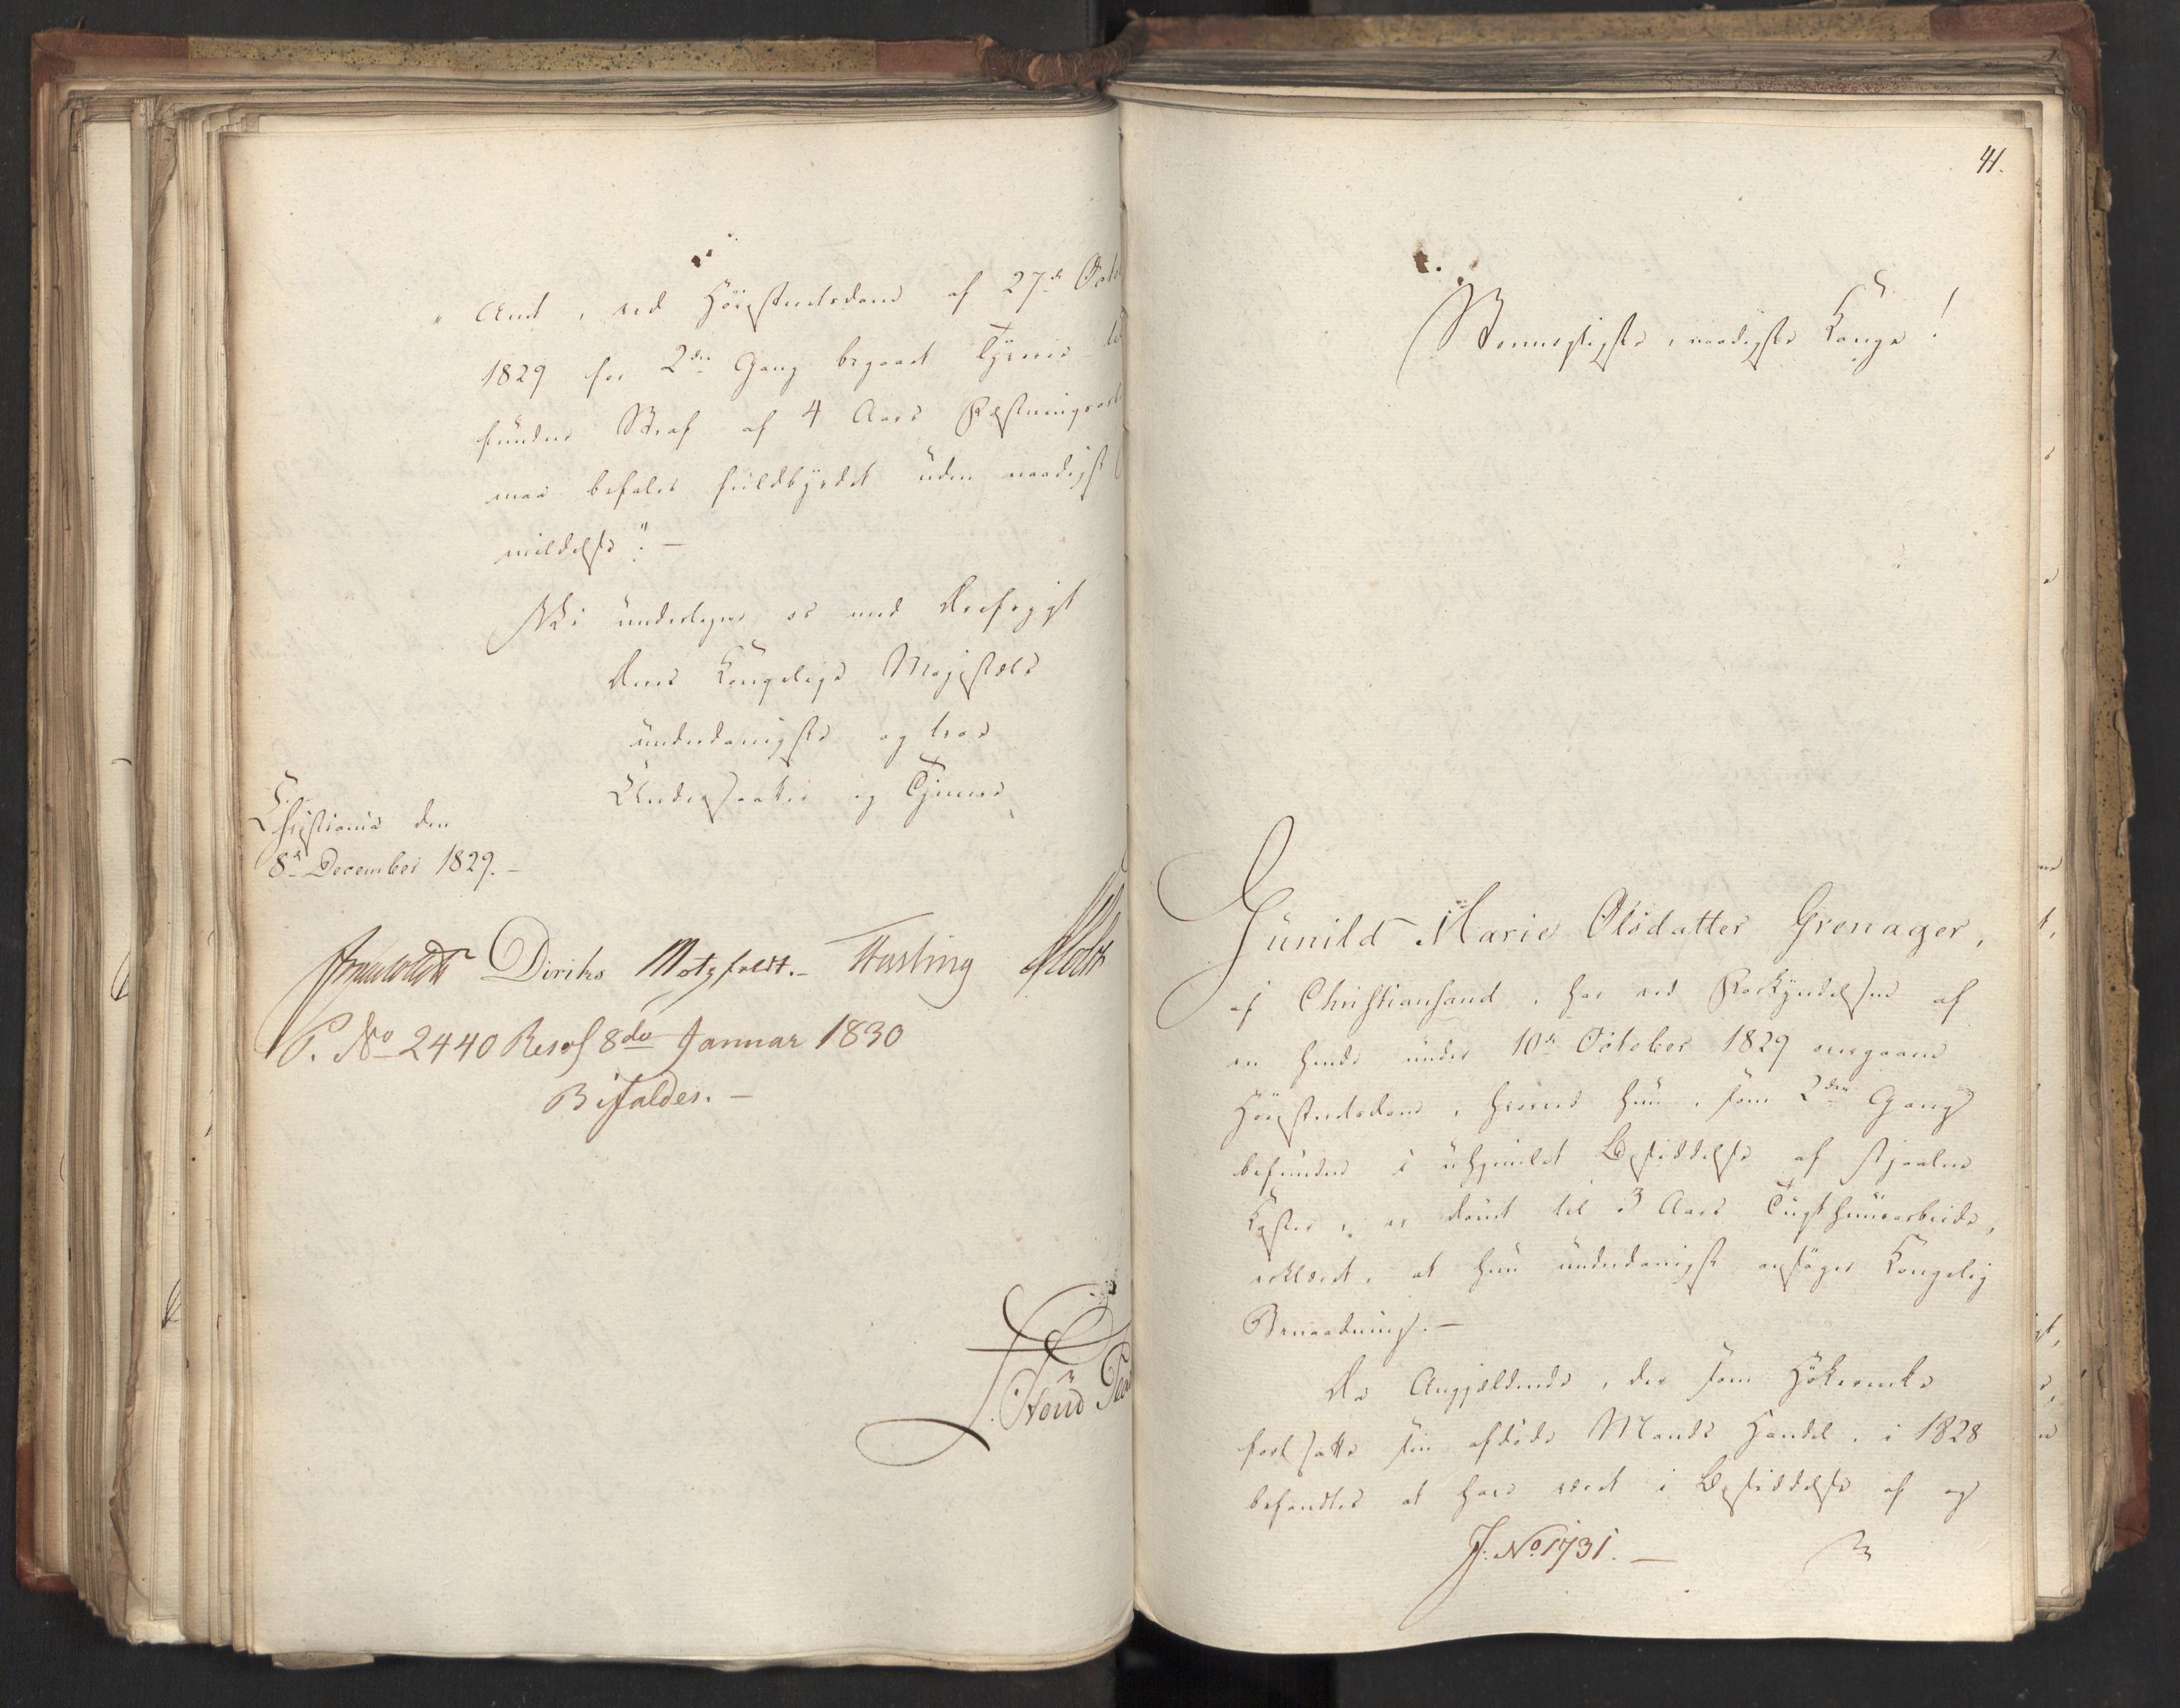 "Amt, ved Høiesteretsdom af 27de Octo
1829 for 2den Gang begaaet Tyverie
fundne Straf af 4 Aars Fæstningsarb
maa befales fuldbyrdet uden naadigst
mildelse". —
Vi undertegne os med Ærefrygt
Deres Kongelige Majestæts
underdanigste og troe
Undersaatter og Tjenere
Christiania den
8de December 1829. —
Diriks Motzfeldt. — Fasting
P. No 2440 Resol 8de Januar 1830
Bifaldes. —
41.
Stormægtigste, naadigste Konge!
Gunild Marie Olsdatter Grenager,
af Christiansand, har ved Forkyndelsen af
en hende under 10de October 1829 overgaaen
Høiesteretsdom, hvorved hun, som 2den Gang
befunden i uhjemlet Besiddelse af stjaalne
Koster, er dømt til 3 Aars Tugthuusarbeide,
erklæret, at hun underdanigst ansøger Kongelig
Benaadning. —
Da Angjældende, der som Høkerenke
fortsatte sin afdøde Mands Handel, i 1828
befandtes at have været i Besiddelse af og
J. No 1731. —